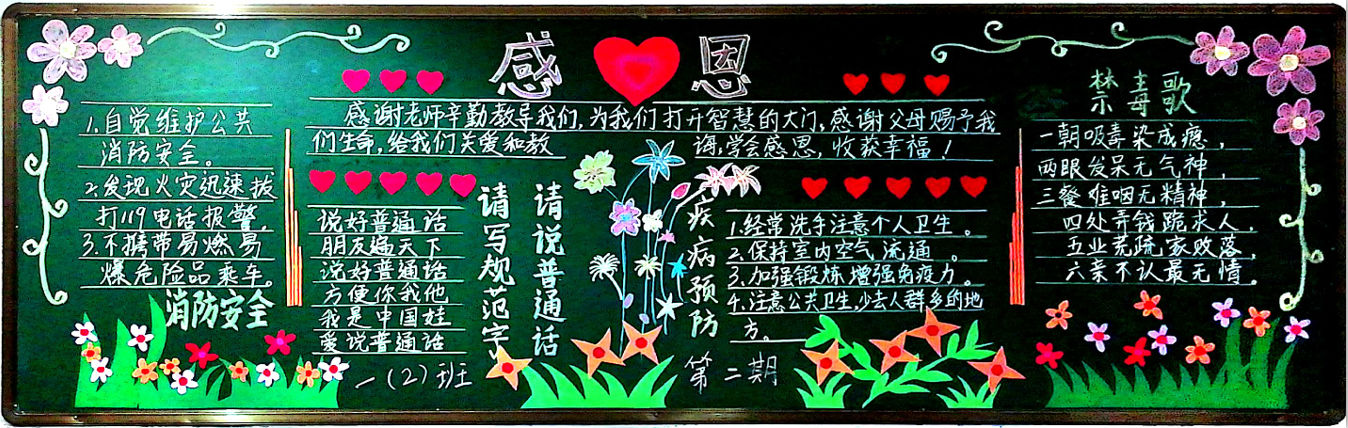 感恩
感谢老师辛勤教导我们,为我们打开智慧的大门,感谢父母赐予我
们生命,给我们关爱和教
诲,学会感恩,收获幸福!
1.自觉维护公共
消防安全。
2.发现火灾迅速拔
打119电话报警.
3.不携带易燃易
爆危险品乘车。
消防安全
说好普通话
朋友遍天下
说好普通话
方便你我他
我是中国娃
爱说普通话
请写规范字
请说普通话
一(2)班
疾病预防
1.经常洗手注意个人卫生。
2.保持室内空气流通。
3.加强锻炼,增强免疫力。
4.注意公共卫生,少去人群多的地
方。
第二期
禁毒歌
一朝吸毒染成瘾,
两眼发呆无气神,
三餐难咽无精神,
四处弄钱跪求人,
五业荒疏家败落,
六亲不认最无情。